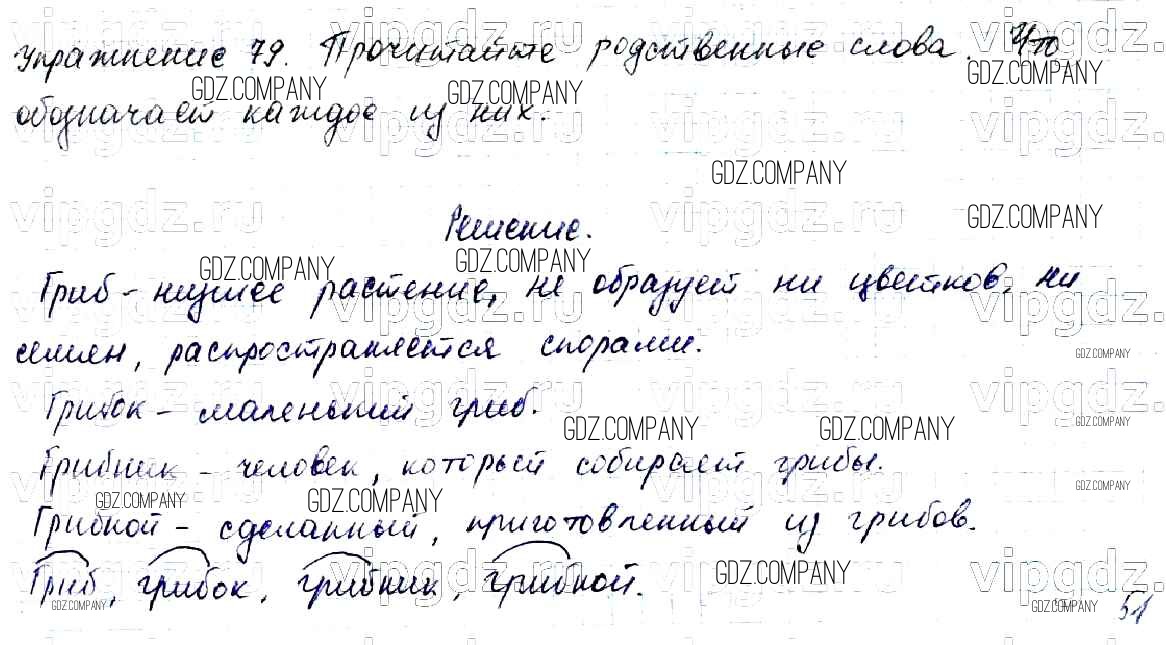 Упражнение 79. Прочитайте родственные слова. Что
обозначает каждое из них.
Решение.
Гриб - низшее растение, не образует ни цветков, ни
семян, распространяется спорами.
Грибок - маленький гриб.
Грибник - человек, который собирает грибы.
Грибной - сделанный, приготовленный из грибов.
Гриб, грибок, грибник, грибной.
51
vipgdz.ru
GDZ.COMPANY